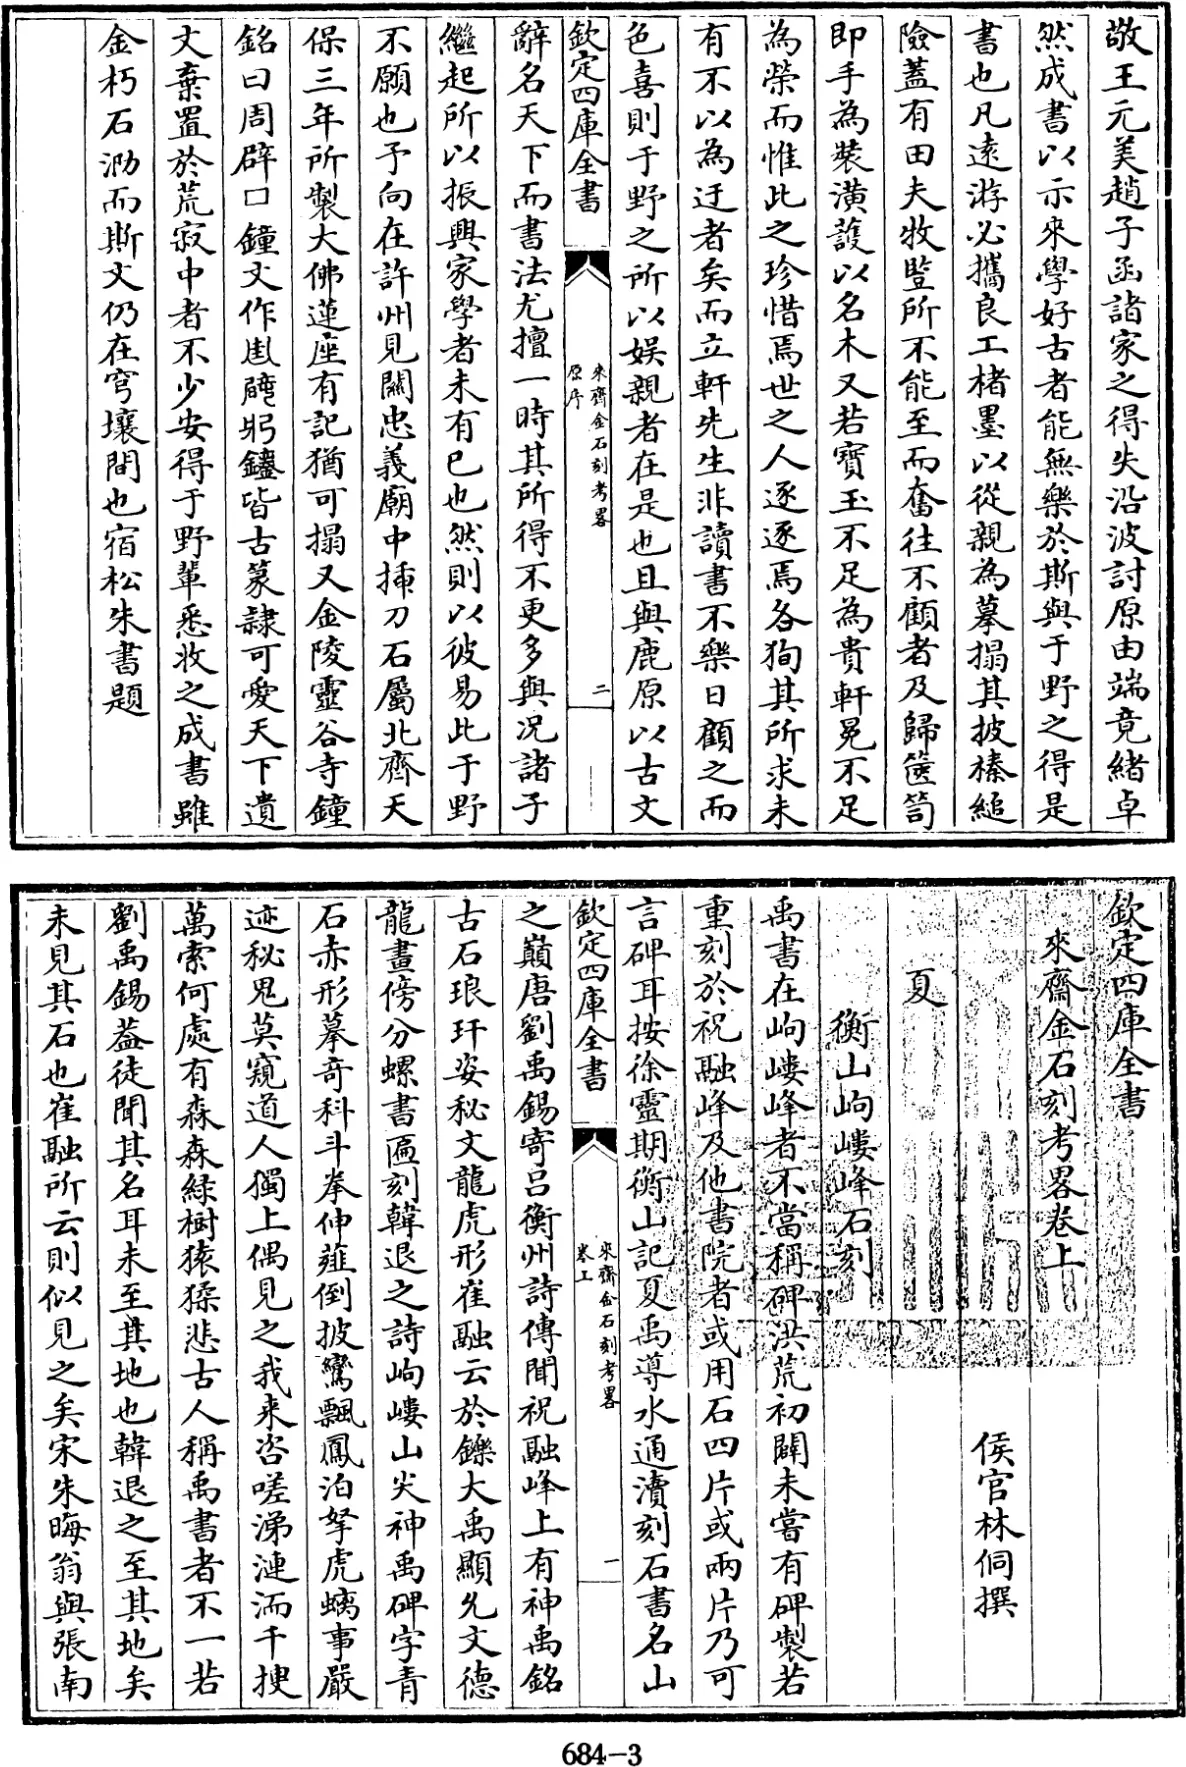 敬王元美趙子函諸家之得失沿波討原由端竟緒卓
然成書以示來學好古者能無樂於斯與于野之得是
書也凡遠游必攜良工楮墨以從親為摹搨其披榛縋
險蓋有田夫牧豎所不能至而奮往不顧者及歸篋笥
即手為裝潢護以名木又若寶玉不足為貴軒冕不足
為榮而惟此之珍惜焉世之人逐逐焉各狥其所求未
有不以為迂者矣而立軒先生非讀書不樂日顧之而
色喜則于野之所以娛親者在是也且與鹿原以古文
欽定四庫全書
來齋金石刻考畧
原序
二
辭名天下而書法尤擅一時其所得不更多與況諸子
繼起所以振興家學者未有已也然則以彼易此于野
不願也予向在許州見關忠義廟中插刀石屬北齊天
保三年所製大佛蓮座有記猶可搨又金陵靈谷寺鐘
銘曰周辟口鐘文作皆古篆隷可愛天下遺
文棄置於荒寂中者不少安得于野輩悉收之成書雖
金朽石泐而斯文仍在穹壤間也宿松朱書題
欽定四庫全書
來齋金石刻考畧卷上
侯官林侗撰
夏
衡山岣嶁峰石刻
禹書在岣嶁峰者不當稱碑洪荒初闢未嘗有碑製若
重刻於祝融峰及他書院者或用石四片或兩片乃可
言碑耳按徐靈期衡山記夏禹導水通瀆刻石書名山
欽定四庫全書
來齋金石刻考畧
卷上
一
之巔唐劉禹錫寄吕衡州詩傳聞祝融峰上有神禹銘
古石琅玕姿秘文龍虎形崔融云於鑠大禹顯允文德
龍畫傍分螺書匾刻韓退之詩岣嶁山尖神禹碑字青
石赤形摹竒科斗拳伸薤倒披鸞飄鳳泊拏虎螭事嚴
迹秘鬼莫窺道人獨上偶見之我来咨嗟涕漣洏千搜
萬索何處有森森緑樹猿猱悲古人稱禹書者不一若
劉禹錫葢徒聞其名耳未至其地也韓退之至其地矣
未見其石也崔融所云則似見之矣宋朱晦翁與張南
684-3